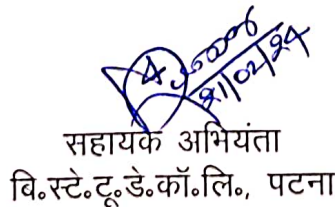 21/02/24
सहायक अभियंता
बि॰स्टे॰टू॰डे॰कॉ॰लि॰, पटना